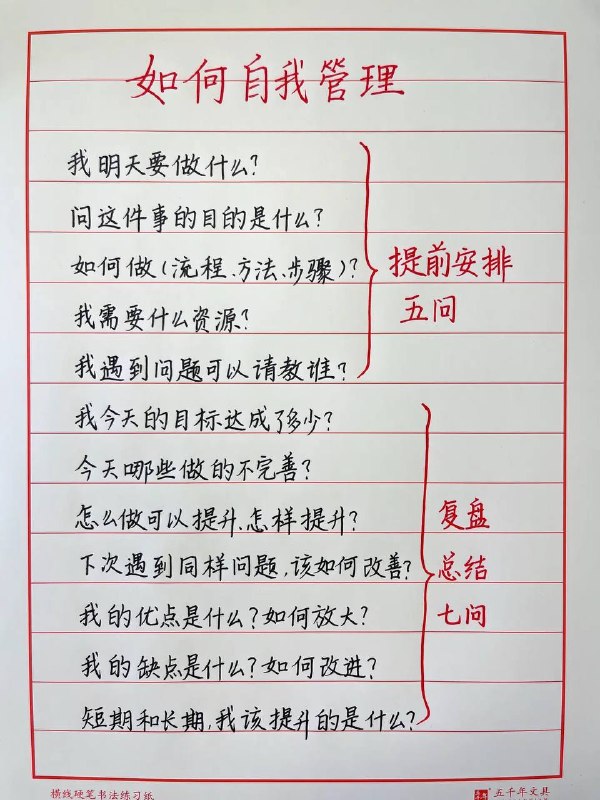 如何自我管理
我明天要做什么?
问这件事的目的是什么?
如何做(流程、方法、步骤)?
我需要什么资源?
我遇到问题可以请教谁?
提前安排
五问
我今天的目标达成了多少?
今天哪些做的不完善?
怎么做可以提升、怎样提升?
下次遇到同样问题,该如何改善?
我的优点是什么?如何放大?
我的缺点是什么?如何改进?
短期和长期,我该提升的是什么?
复盘
总结
七问
横线硬笔书法练习纸
五千年文具